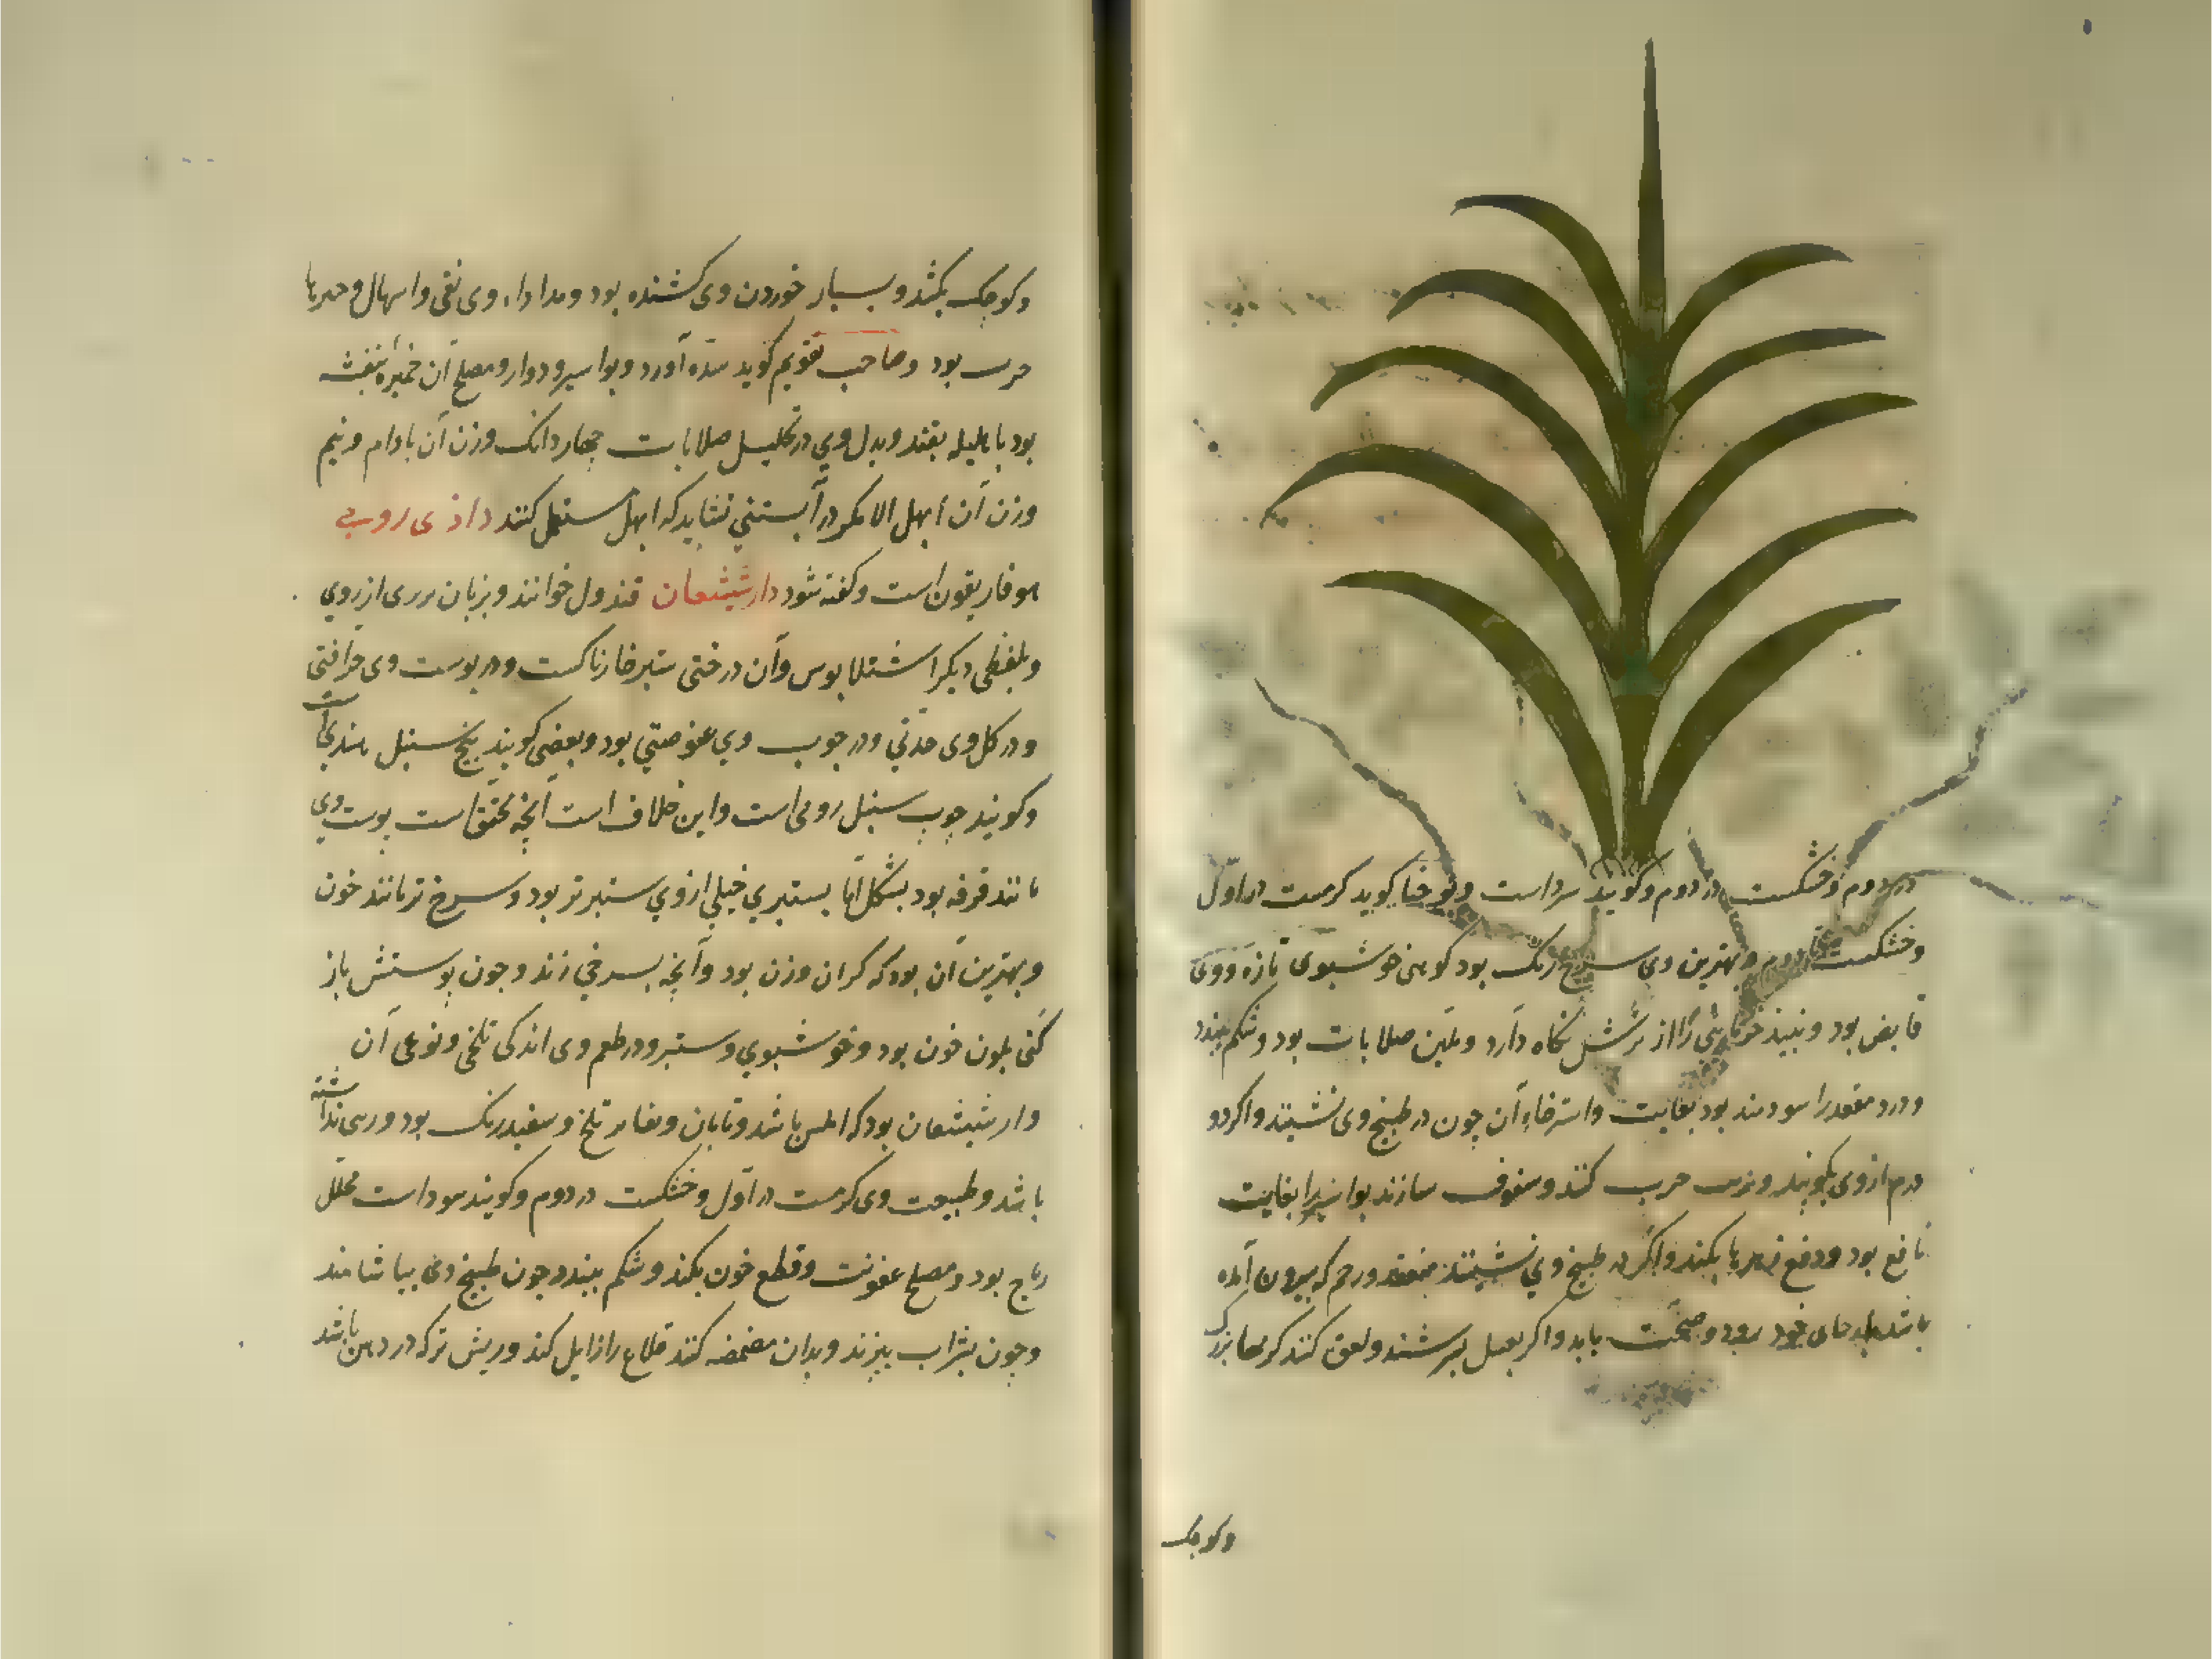 در دوم و خشکست در دوم و کویند سرد است و یوحنا کوید کرمست در اول
و خشکست در دوم و بهترین وی سرخ رنک بود کوهی خوشبوی تازه و وی
قابض بود و نبیذ خرمایی را از ترشش نکاه دارد و ملین صلابات بود و شکم ببندد
و درد مقعد را سودمند بود بغایت و استرخاء آن چون در طبیخ وی نشینند و اکر دو
درم از وی بکوبند و بزیت چرب کنند و سفوف سازند بواسیر را بغایت
نافع بود و دفع زهرها بکند و اکر در طبیخ وی نشینند مقعد و رحم که بیرون آمده
باشد بجای خود رود و صحت یابد و اکر بعسل بسرشند و لعق کنند کرمها بزرک
وکوجک
وکوجک بکشد و بسیار خوردن وی کشنده بود و مداواء وی بقی و اسهال و چیزها
چرب بود و صاحب تقویم کوید سده آورد و بواسیر و دوار و مصلح آن خمیره بنفشه
بود با هلیله بقند و بدل وی در تحلیل صلابات چهار دانک وزن آن بادام و نیم
وزن آن ابهل الا مکر در آبستنی نشاید که ابهل مستعمل کنند داذی رومی
هوفاریقون است و کفته شود دارشیشعان قندول خوانند و بزبان بربری ازروی
و بلفظی دیکر اشتلابوس و آن درختی ستبر خارناکست و در پوست وی حرافتی
و در کل وی حدتی و در چوب وی عفوصتی بود و بعضی کویند بیخ سنبل هندیست
و کویند چوب سنبل رومی است و این خلاف است آنچه محقق است پوست وی
مانند قرفه بود بشکل اما بستبری خیلی از وی ستبرتر بود و سرخ تر مانند خون
و بهترین آن بود که کران وزن بود و آنچه بسرخی زند و چون پوستش باز
کنی بلون خون بود و خوشبوی و ستبر و در طعم وی اندکی تلخی و نوعی آن
دارشیشعان بود که املس باشد و تابان و بغایر تلخ و سفید رنک بود و رسی نداشته
باشد و طبیعت وی کرمست در اول و خشکست در دوم و کویند سرد است محلل
ریاح بود و مصلح عفونت و قطع خون بکند و شکم ببندد چون طبیخ وی بیاشامند
و چون بشراب بپزند و بدان مضمضه کنند قلاع را زایل کند و ریش تر که در دهن باشد